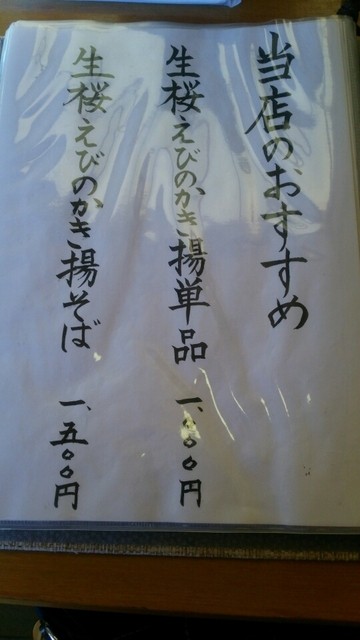 当店のおすすめ
生桜えびのかき揚単品 一、〇〇〇円
生桜えびのかき揚そば 一、五〇〇円